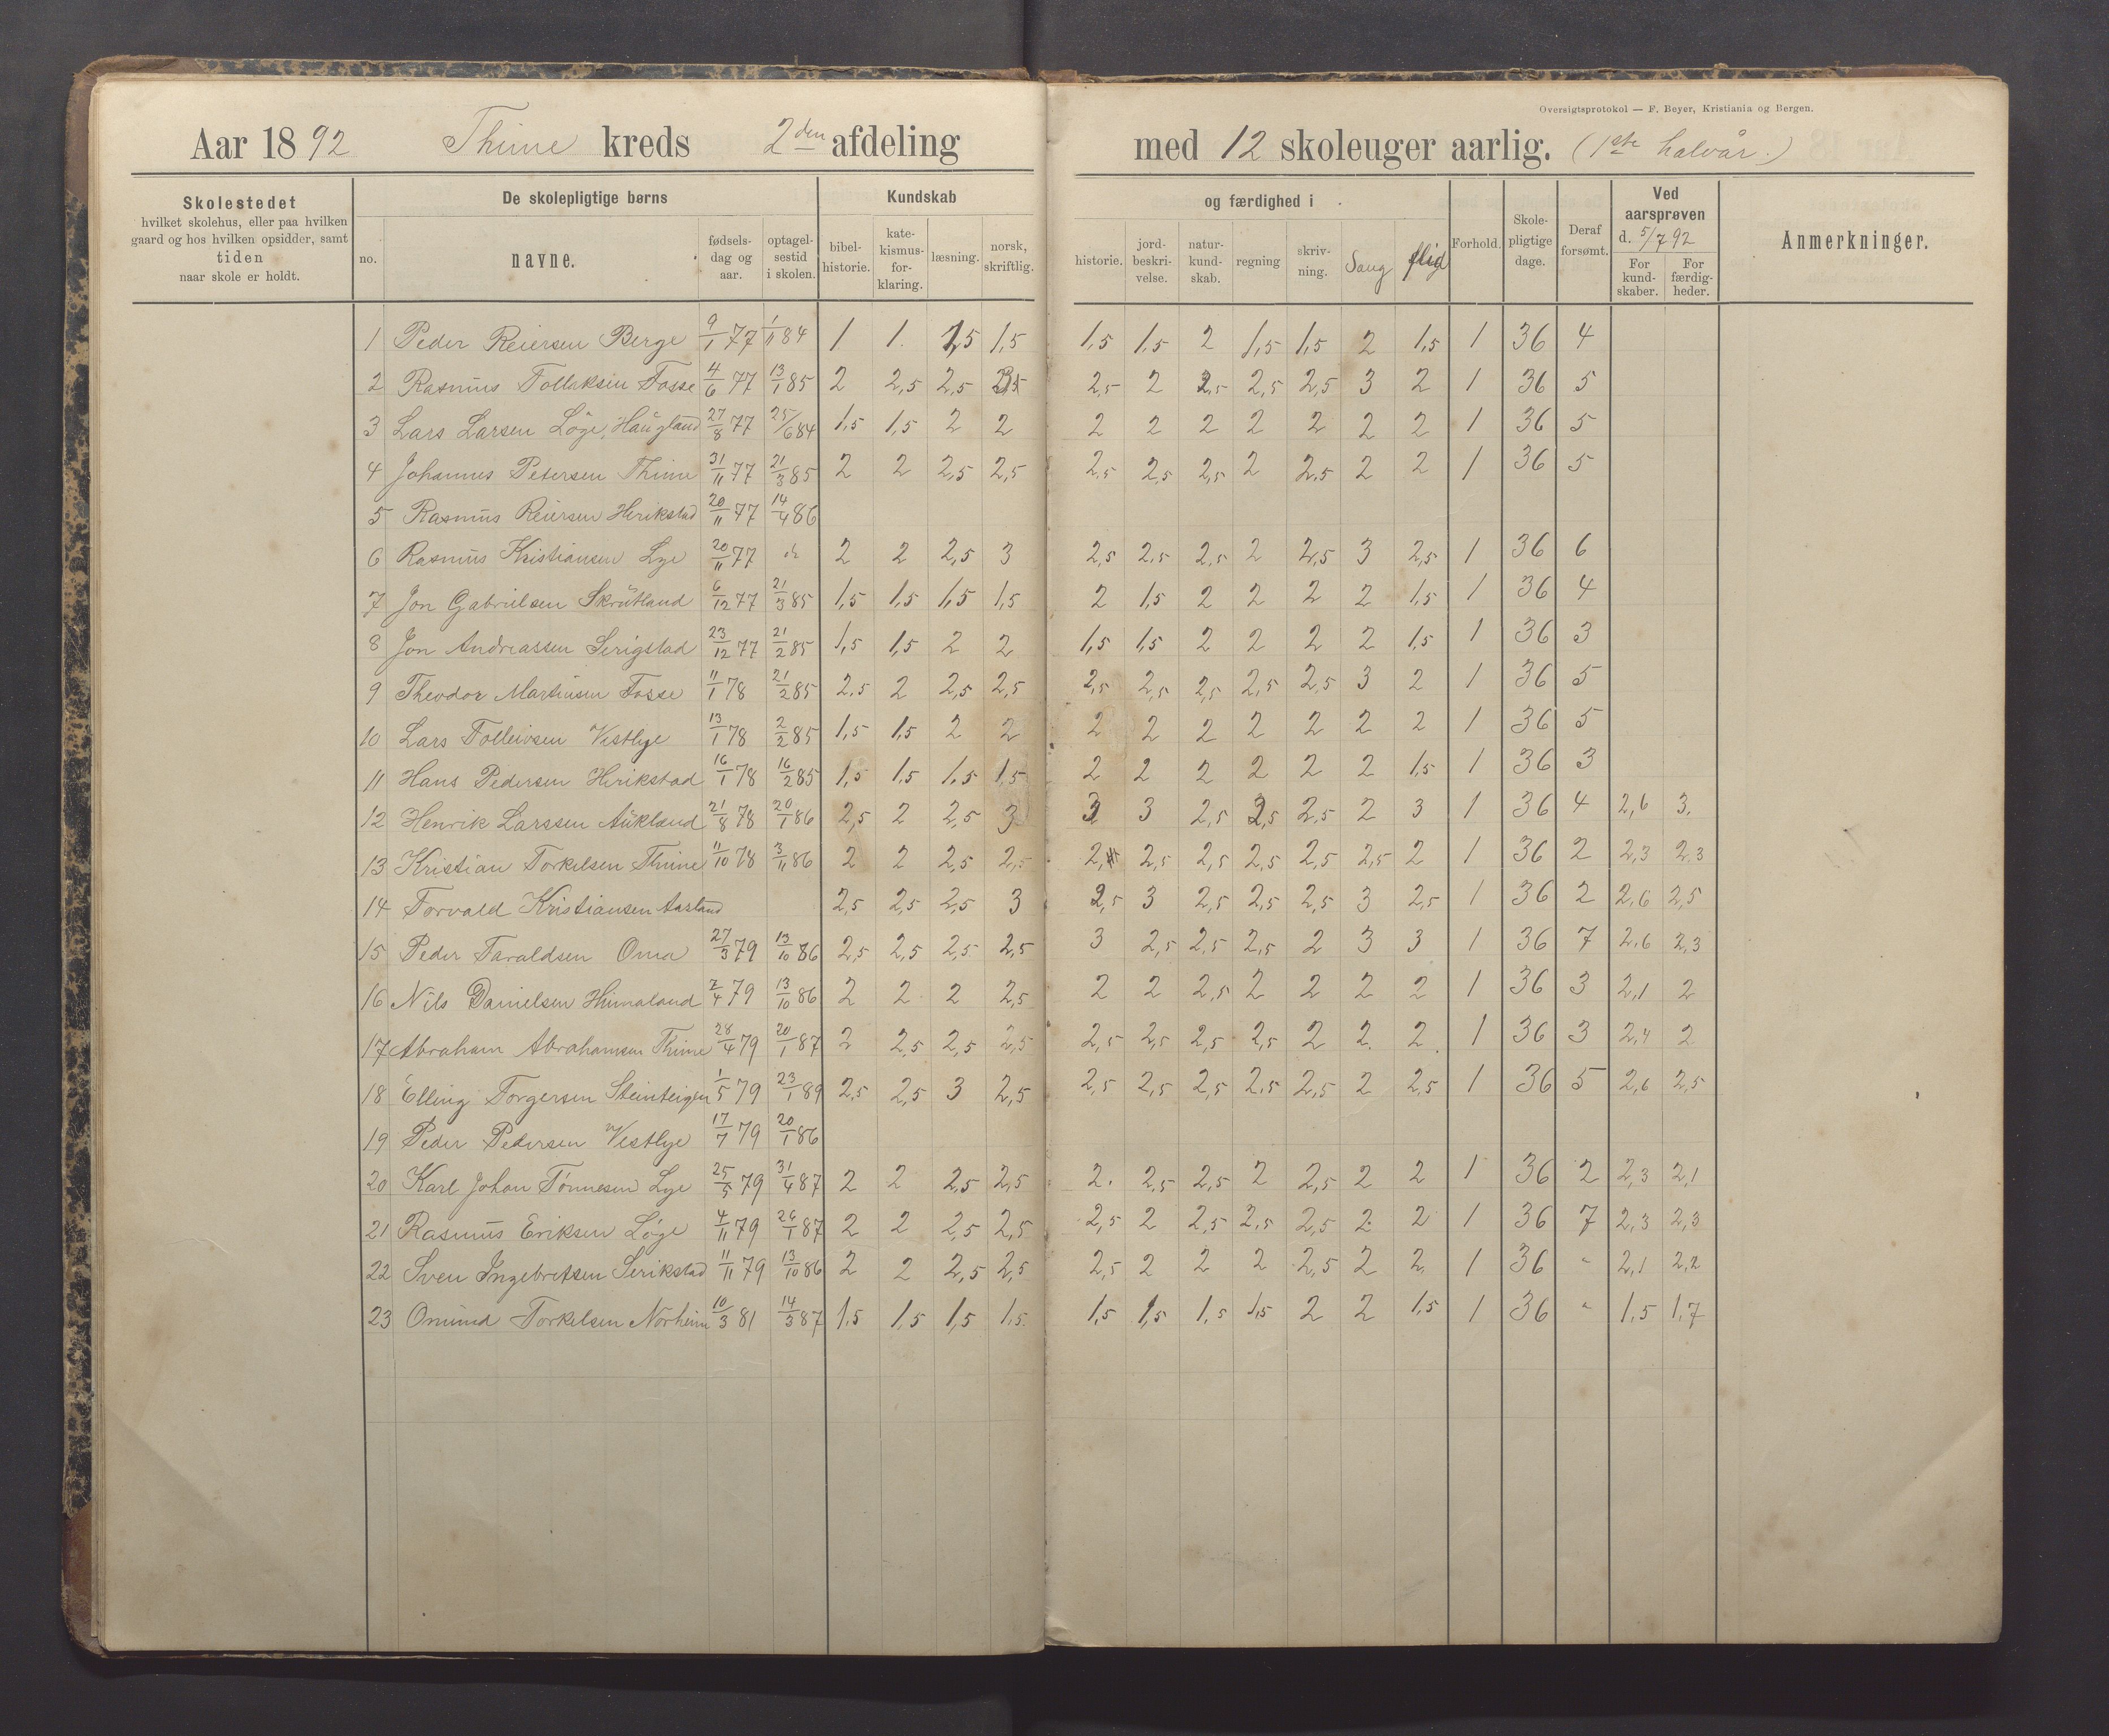 Oversigtsprotokol — F. Beyer, Kristiania og Bergen.
Aar 1892 Thime kreds 2den afdeling med 12 skoleuger aarlig. (1ste halvår.)
Skolestedet hvilket skolehus, eller paa hvilken gaard og hos hvilken opsidder, samt tiden naar skole er holdt.
De skolepligtige børns
no. navne. fødsels-dag og aar. optagel-sestid i skolen.
Kundskab og færdighed i
bibel-historie. kate-kismus-for-klaring. læsning. norsk, skriftlig. historie. jord-beskri-velse. natur-kund-skab. regning skriv-ning. Sang flid
Forhold. Skole-pligtige dage. Deraf forsømt.
Ved aarsprøven d. 5/7 92
For kund-skaber. For færdig-heder.
Anmerkninger.
1 Peder Reiersen Berge 9/1 77 1/11 84 1 1. 1,5 1,5 1,5 1,5 2 1,5 1,5 2 1,5 1 36 4
2 Rasmus Tollaksen Fosse 4/6 77 13/1 85 2 2,5 2,5 2,5 2 2,5 2,5 2,5 3 2 1 36 5
3 Lars Larsen Löge, Haugland 27/8 77 25/6 84 1,5 1,5 2 2 2 2 2 2 2 2 2 1 36 5
4 Johannes Petersen Thime 31/11 77 21/3 85 2 2 2,5 2,5 2,5 2,5 2,5 2 2,5 2 2 1 36 5
5 Rasmus Reiersen Herikstad 20/11 77 14/4 86
6 Rasmus Kristiansen Lye 20/11 77 2 2 2,5 3 2,5 2,5 2,5 2 2,5 3 2,5 1 36 6
7 Jon Gabrielsen Skrutland 6/12 77 21/3 85 1,5 1,5 1,5 1,5 2 1,5 2 2 2 2 1,5 1 36 4
8 Jon Andreassen Serigstad 23/12 77 21/2 85 1,5 1,5 2 2 1,5 1,5 2 2 2 2 1,5 1 36 3
9 Theodor Martinsen Fosse 11/1 78 21/2 85 2,5 2 2,5 2,5 2,5 2,5 2,5 2,5 2,5 3 2 1 36 5
10 Lars Tolleivsen Vestlye 13/1 78 2/2 85 1,5 1,5 2 2 2 2 2 2 2 2 2 1 36 5
11 Hans Pedersen Herikstad 16/1 78 16/2 85 1,5 1,5 1,5 1,5 2 2 2 2 2 2 1,5 1 36 3
12 Henrik Larssen Aukland 21/8 78 20/1 86 2,5 2 2,5 3 3 3 2,5 2,5 2,5 2 3 1 36 4 2,6 3.
13 Kristian Torkelsen Thime 11/10 78 3/11 86 2 2 2,5 2,5 2, 2,5 2,5 2,5 2,5 2,5 2 1 36 2 2,3 2,3
14 Torvald Kristiansen Aasland 2,5 2,5 2,5 3 2,5 3 2,5 2,5 2,5 3 2,5 1 36 2 2,6 2,5
15 Peder Taraldsen Oma 27/3 79 13/10 86 2,5 2,5 2,5 2,5 3 2,5 2,5 2,5 2 3 3 1 36 7 2,6 2,3
16 Nils Danielsen Humaland 2/4 79 13/10 86 2 2 2 2,5 2 2 2,5 2 2 2 2 1 36 3 2,1 2
17 Abraham Abrahamsen Thime 28/4 79 20/1 87 2 2,5 2,5 2,5 2,5 2,5 2,5 2,5 2 2. 2. 1 36 3 2,4 2
18 Elling Torgersen Steinteigen 1/5 79 23/1 89 2,5 2,5 3 2,5 2,5 2,5 2,5 2,5 2,5 2 2,5 1 36 5 2,6 2,5
19 Peder Pedersen Vestlye 17/7 79 20/1 86
20 Karl Johan Tönnesen Lye 25/5 79 31/4 87 2 2 2,5 2,5 2. 2,5 2,5 2 2,5 2 2 1 36 2 2,3 2,1
21 Rasmus Eriksen Löge 4/11 79 26/1 87 2 2 2,5 2,5 2,5 2 2,5 2,5 2,5 2 2 1 36 7 2,3 2,3
22 Sven Ingebretsen Serikstad 11/11 79 13/10 86 2 2 2,5 2,5 2,5 2 2 2 2,5 2 2 1 36 " 2,1 2,2
23 Omund Torkelsen Norheim 10/3 81 14/3 87 1,5 1,5 1,5 1,5 1,5 1,5 1,5 1,5 2 2 1,5 1 36 " 1,5 1,7